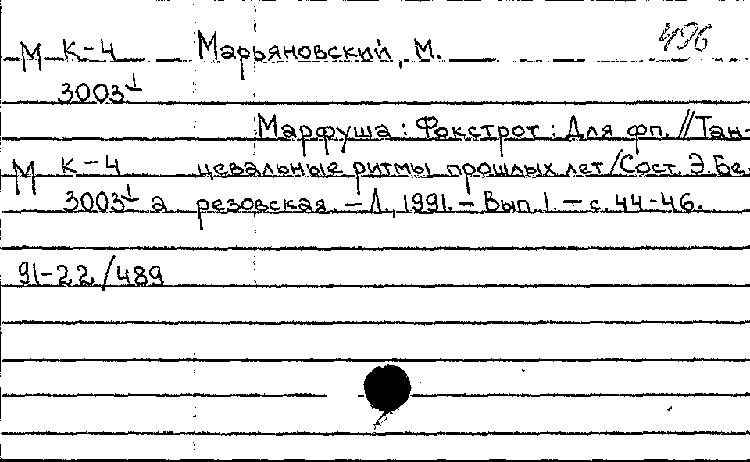 М К-4 Марьяновский, М. 496
3003
Марфуша : Фокстрот : Для фп. // Тан-
М К-4 цевальные ритмы прошлых лет / Сост. Э. Бе-
3003 а резовская. – Л., 1991. – Вып. 1. – с. 44-46.
91-22/489